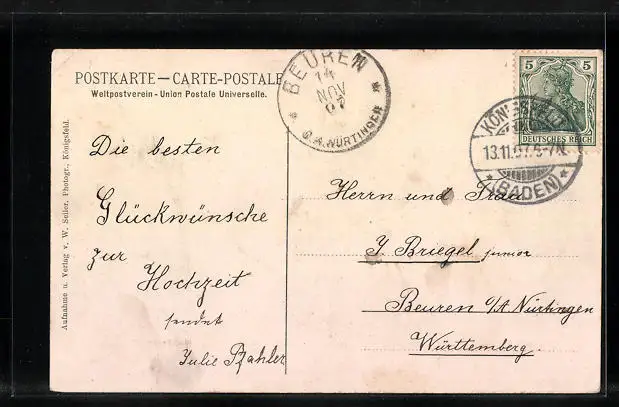 POSTKARTE — CARTE-POSTALE
Weltpostverein - Union Postale Universelle.
BEUREN
14
NOV
07
O.A. NÜRTINGEN
5 5
DEUTSCHES REICH
KÖNIGSFELD
13.11.07. 5-7N.
(BADEN)
Aufnahme u. Verlag v. W. Seiler. Photogr., Königsfeld.
Die besten
Glückwünsche
zur
Hochzeit
sendet
Julie
Herrn und Frau
J. Briegel junior
Beuren O/A Nürtingen
Württemberg.